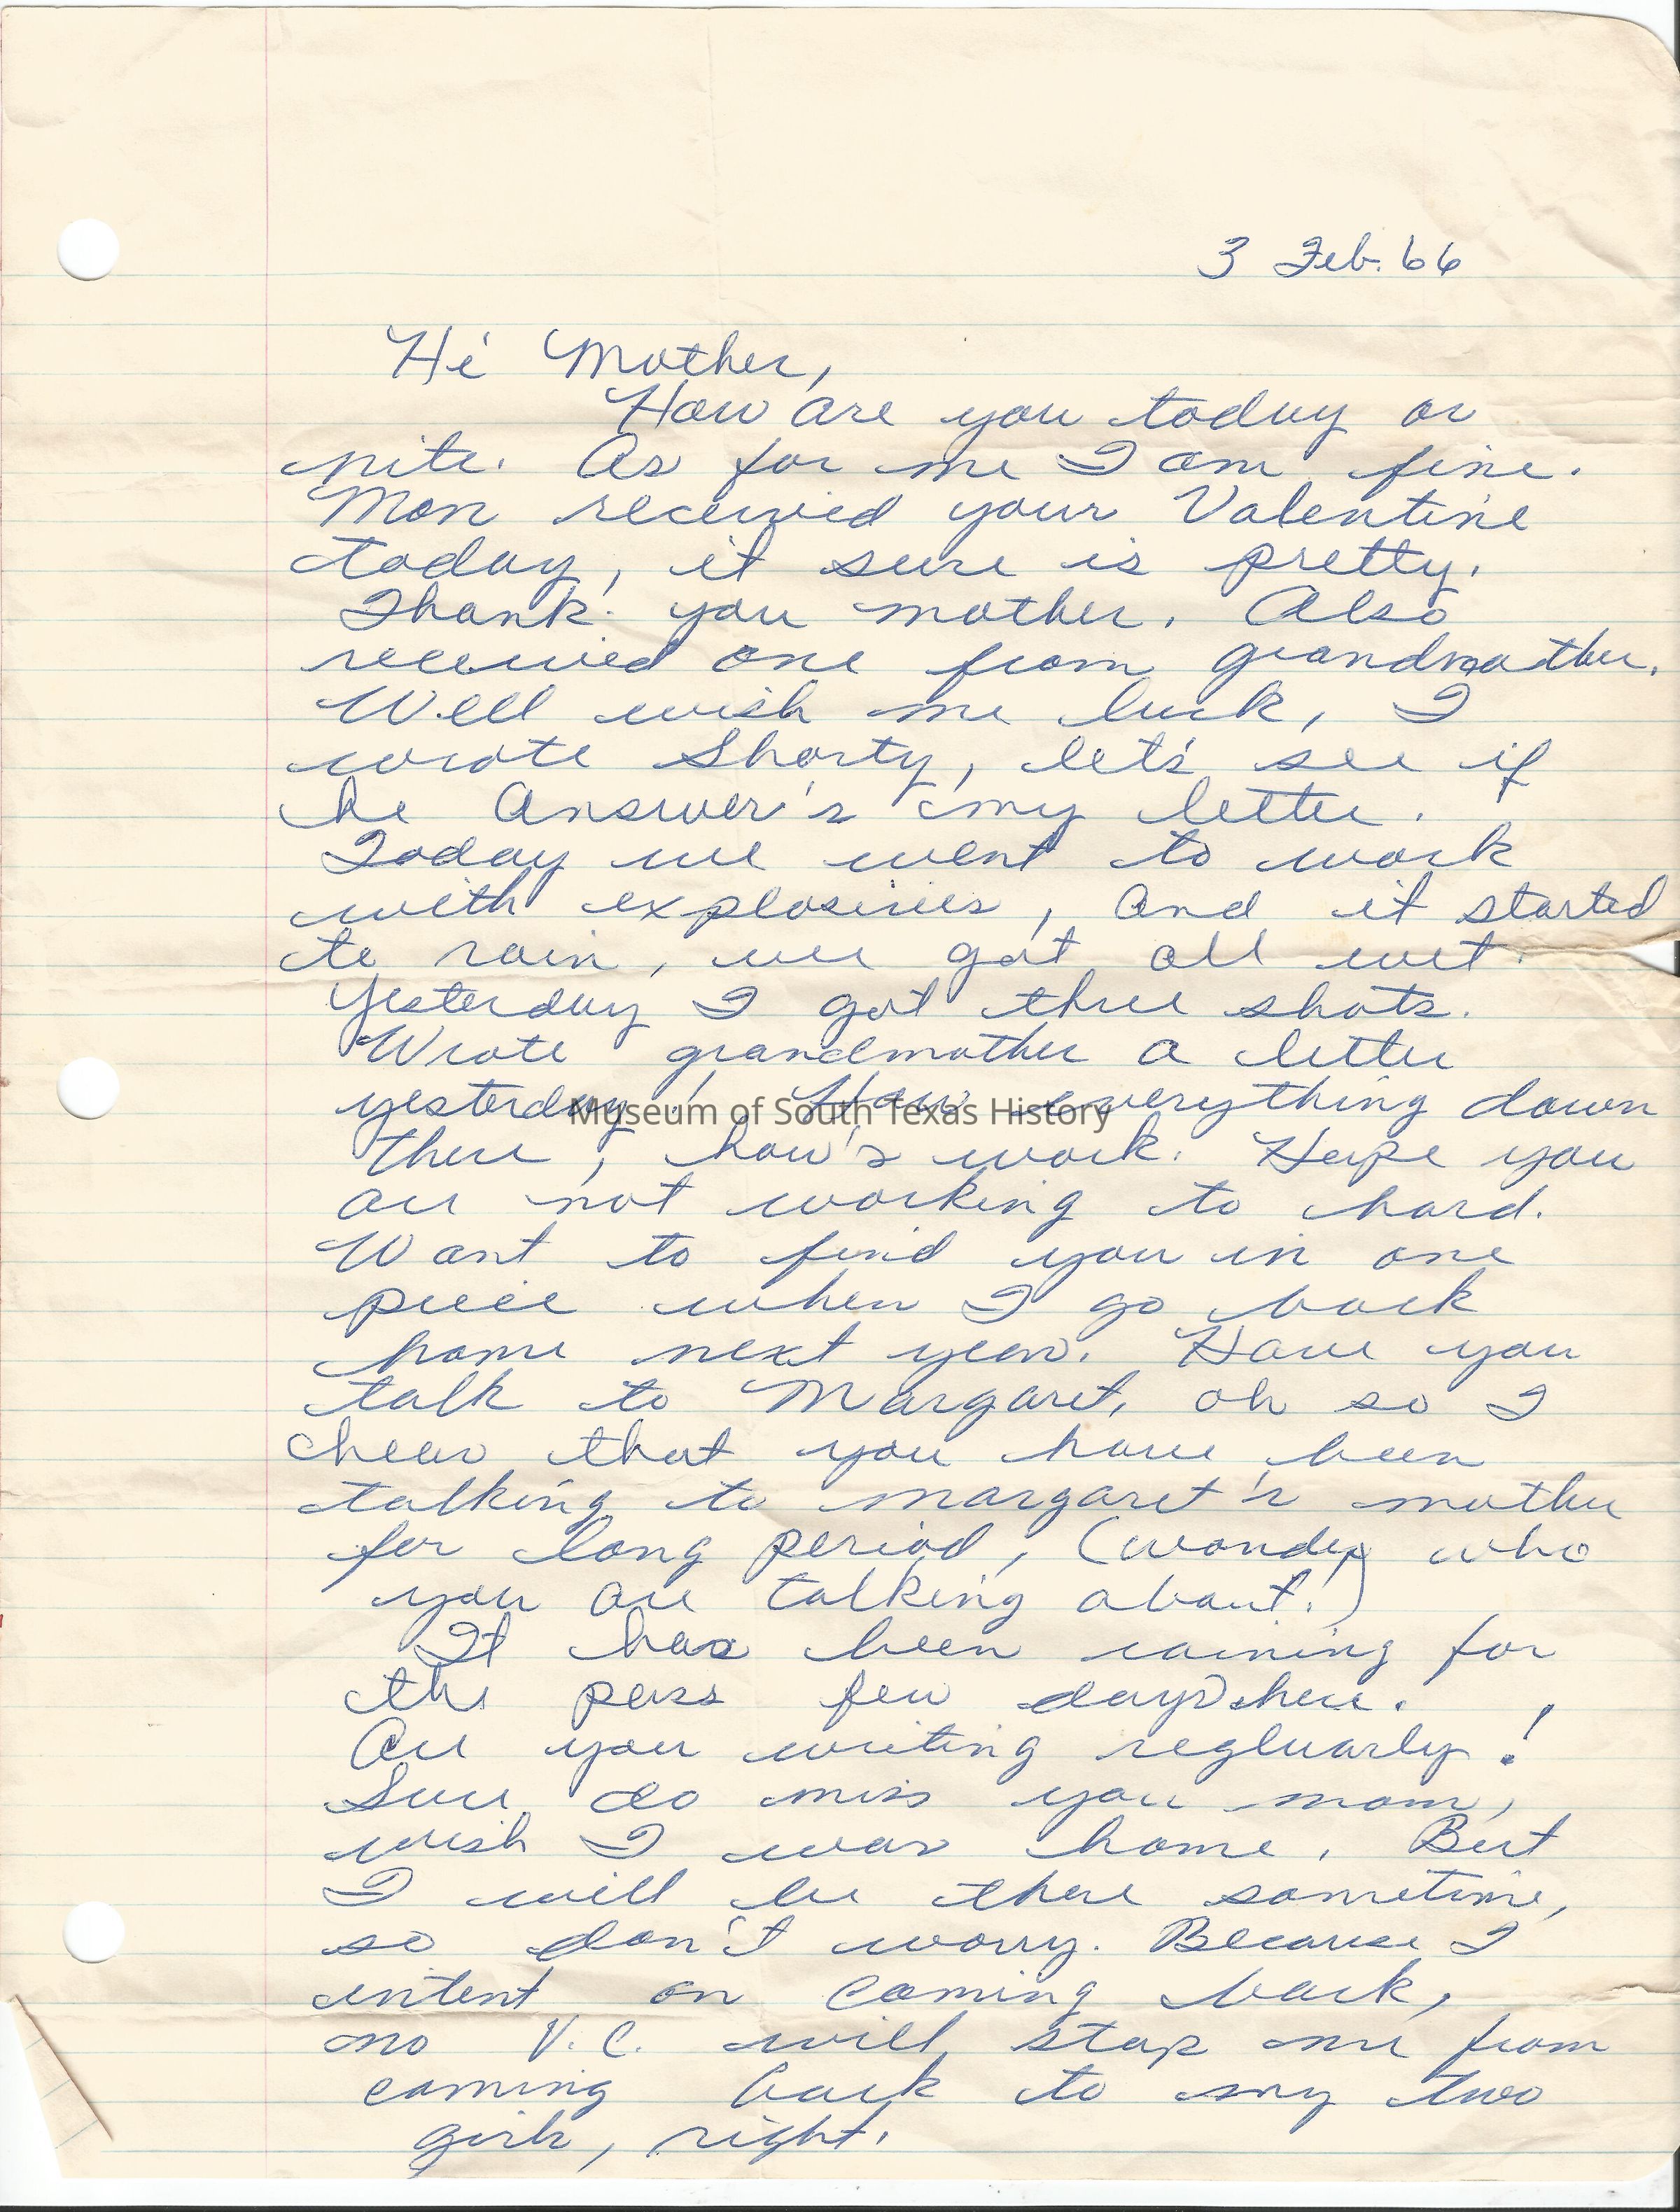 3 Feb. 66
Hi Mother,
How are you today or
nite. As for me I am fine.
Mon received your Valentine
today, it sure is pretty.
Thank you mother. Also
received one from grandmother.
Well wish me luck, I
wrote Shorty, let's see if
he answer's my letter.
Today we went to work
with explosives, and it started
to rain, we got all wet.
Yesterday I got three shots.
Wrote grandmother a letter
yesterday! How's everything down
there, how's work. Hope you
are not working to hard.
Want to find you in one
piece when I go back
home next year. Have you
talk to Margaret, oh so I
hear that you have been
talking to margaret's mother
for long period, (wonder who
you are talking about.)
It has been raining for
the pass few days here.
Are you writing regluarly!
Sure do miss you mom,
wish I was home. But
I will be there sometime,
so don't worry. Because I
intent on coming back,
no V.C. will stop me from
coming back to my two
girls, right.
Museum of South Texas History